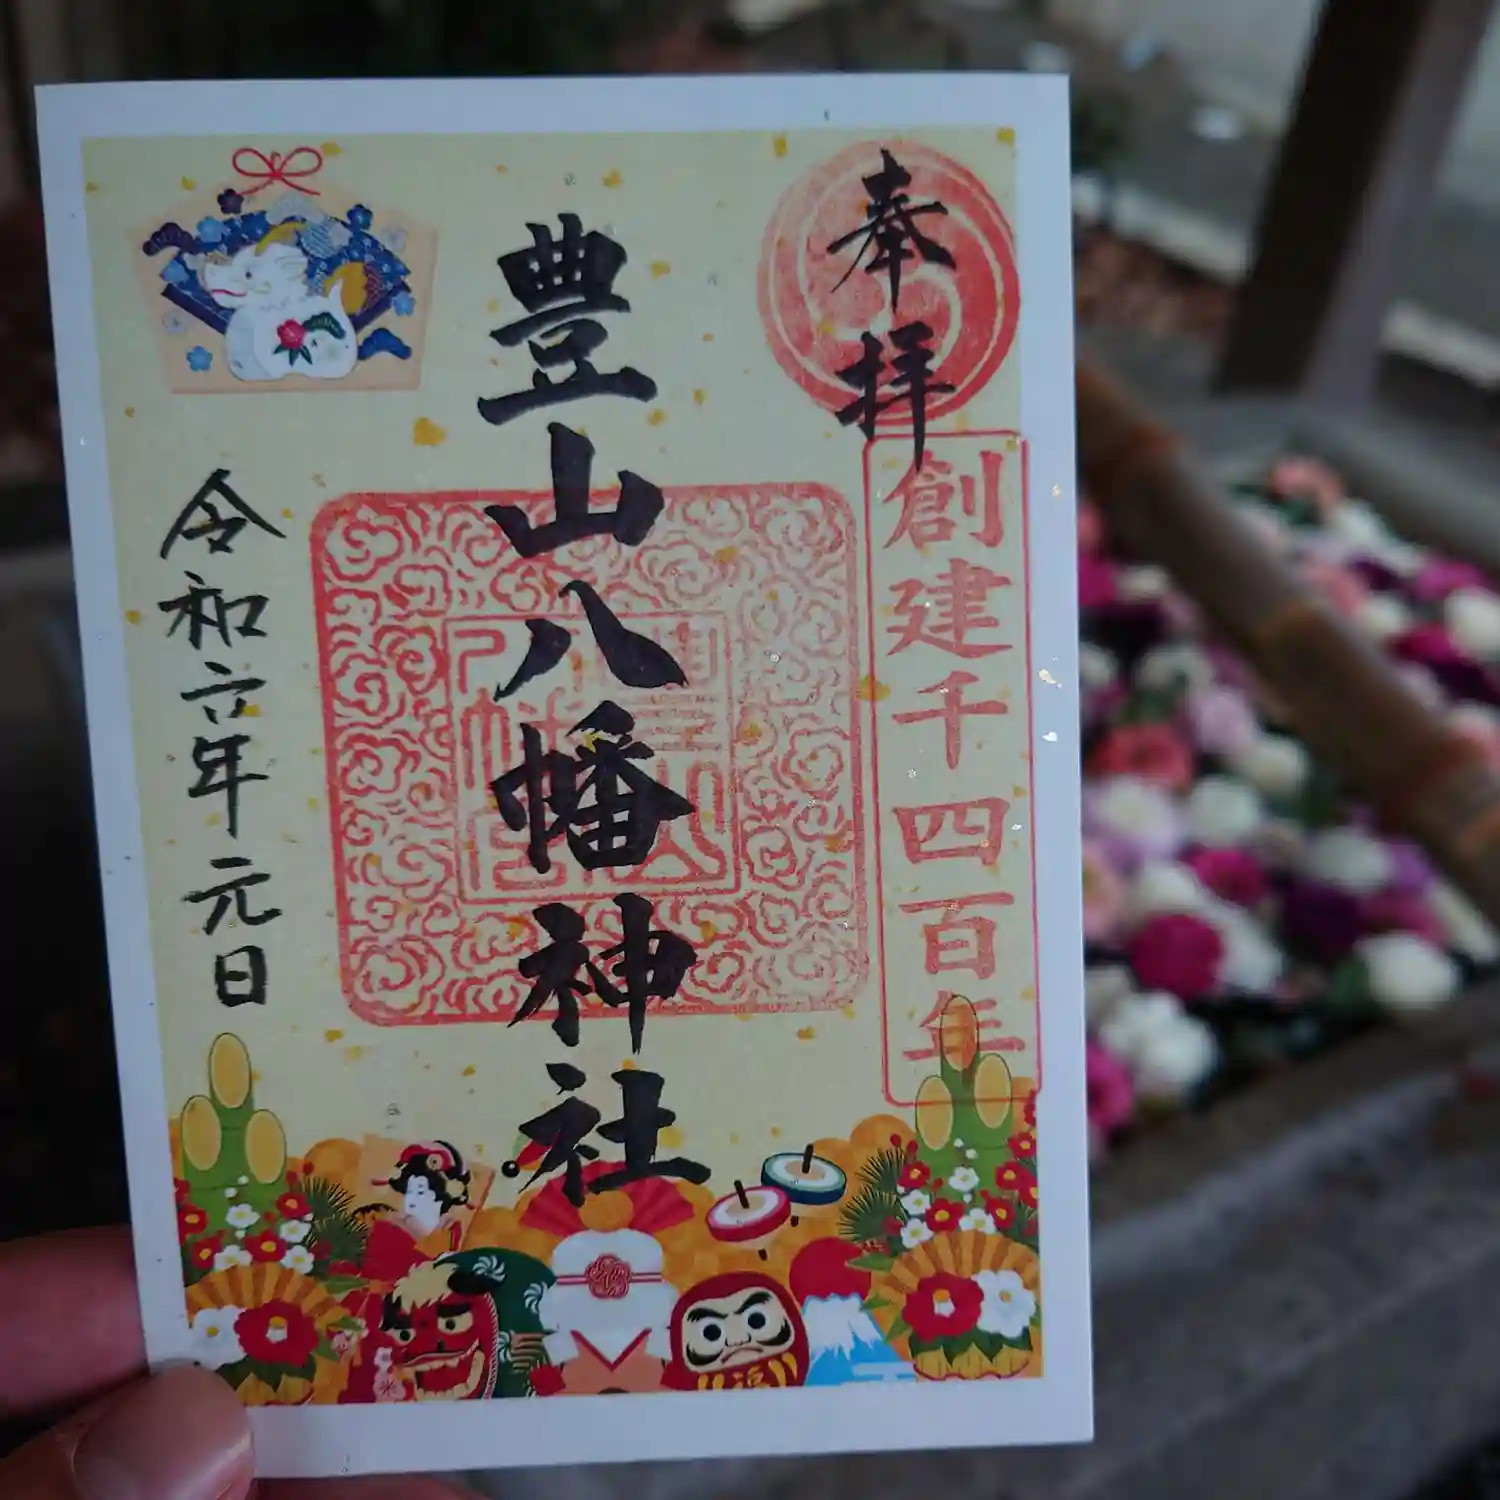 奉拝
創建千四百年
豊山八幡神社
令和六年元日
福